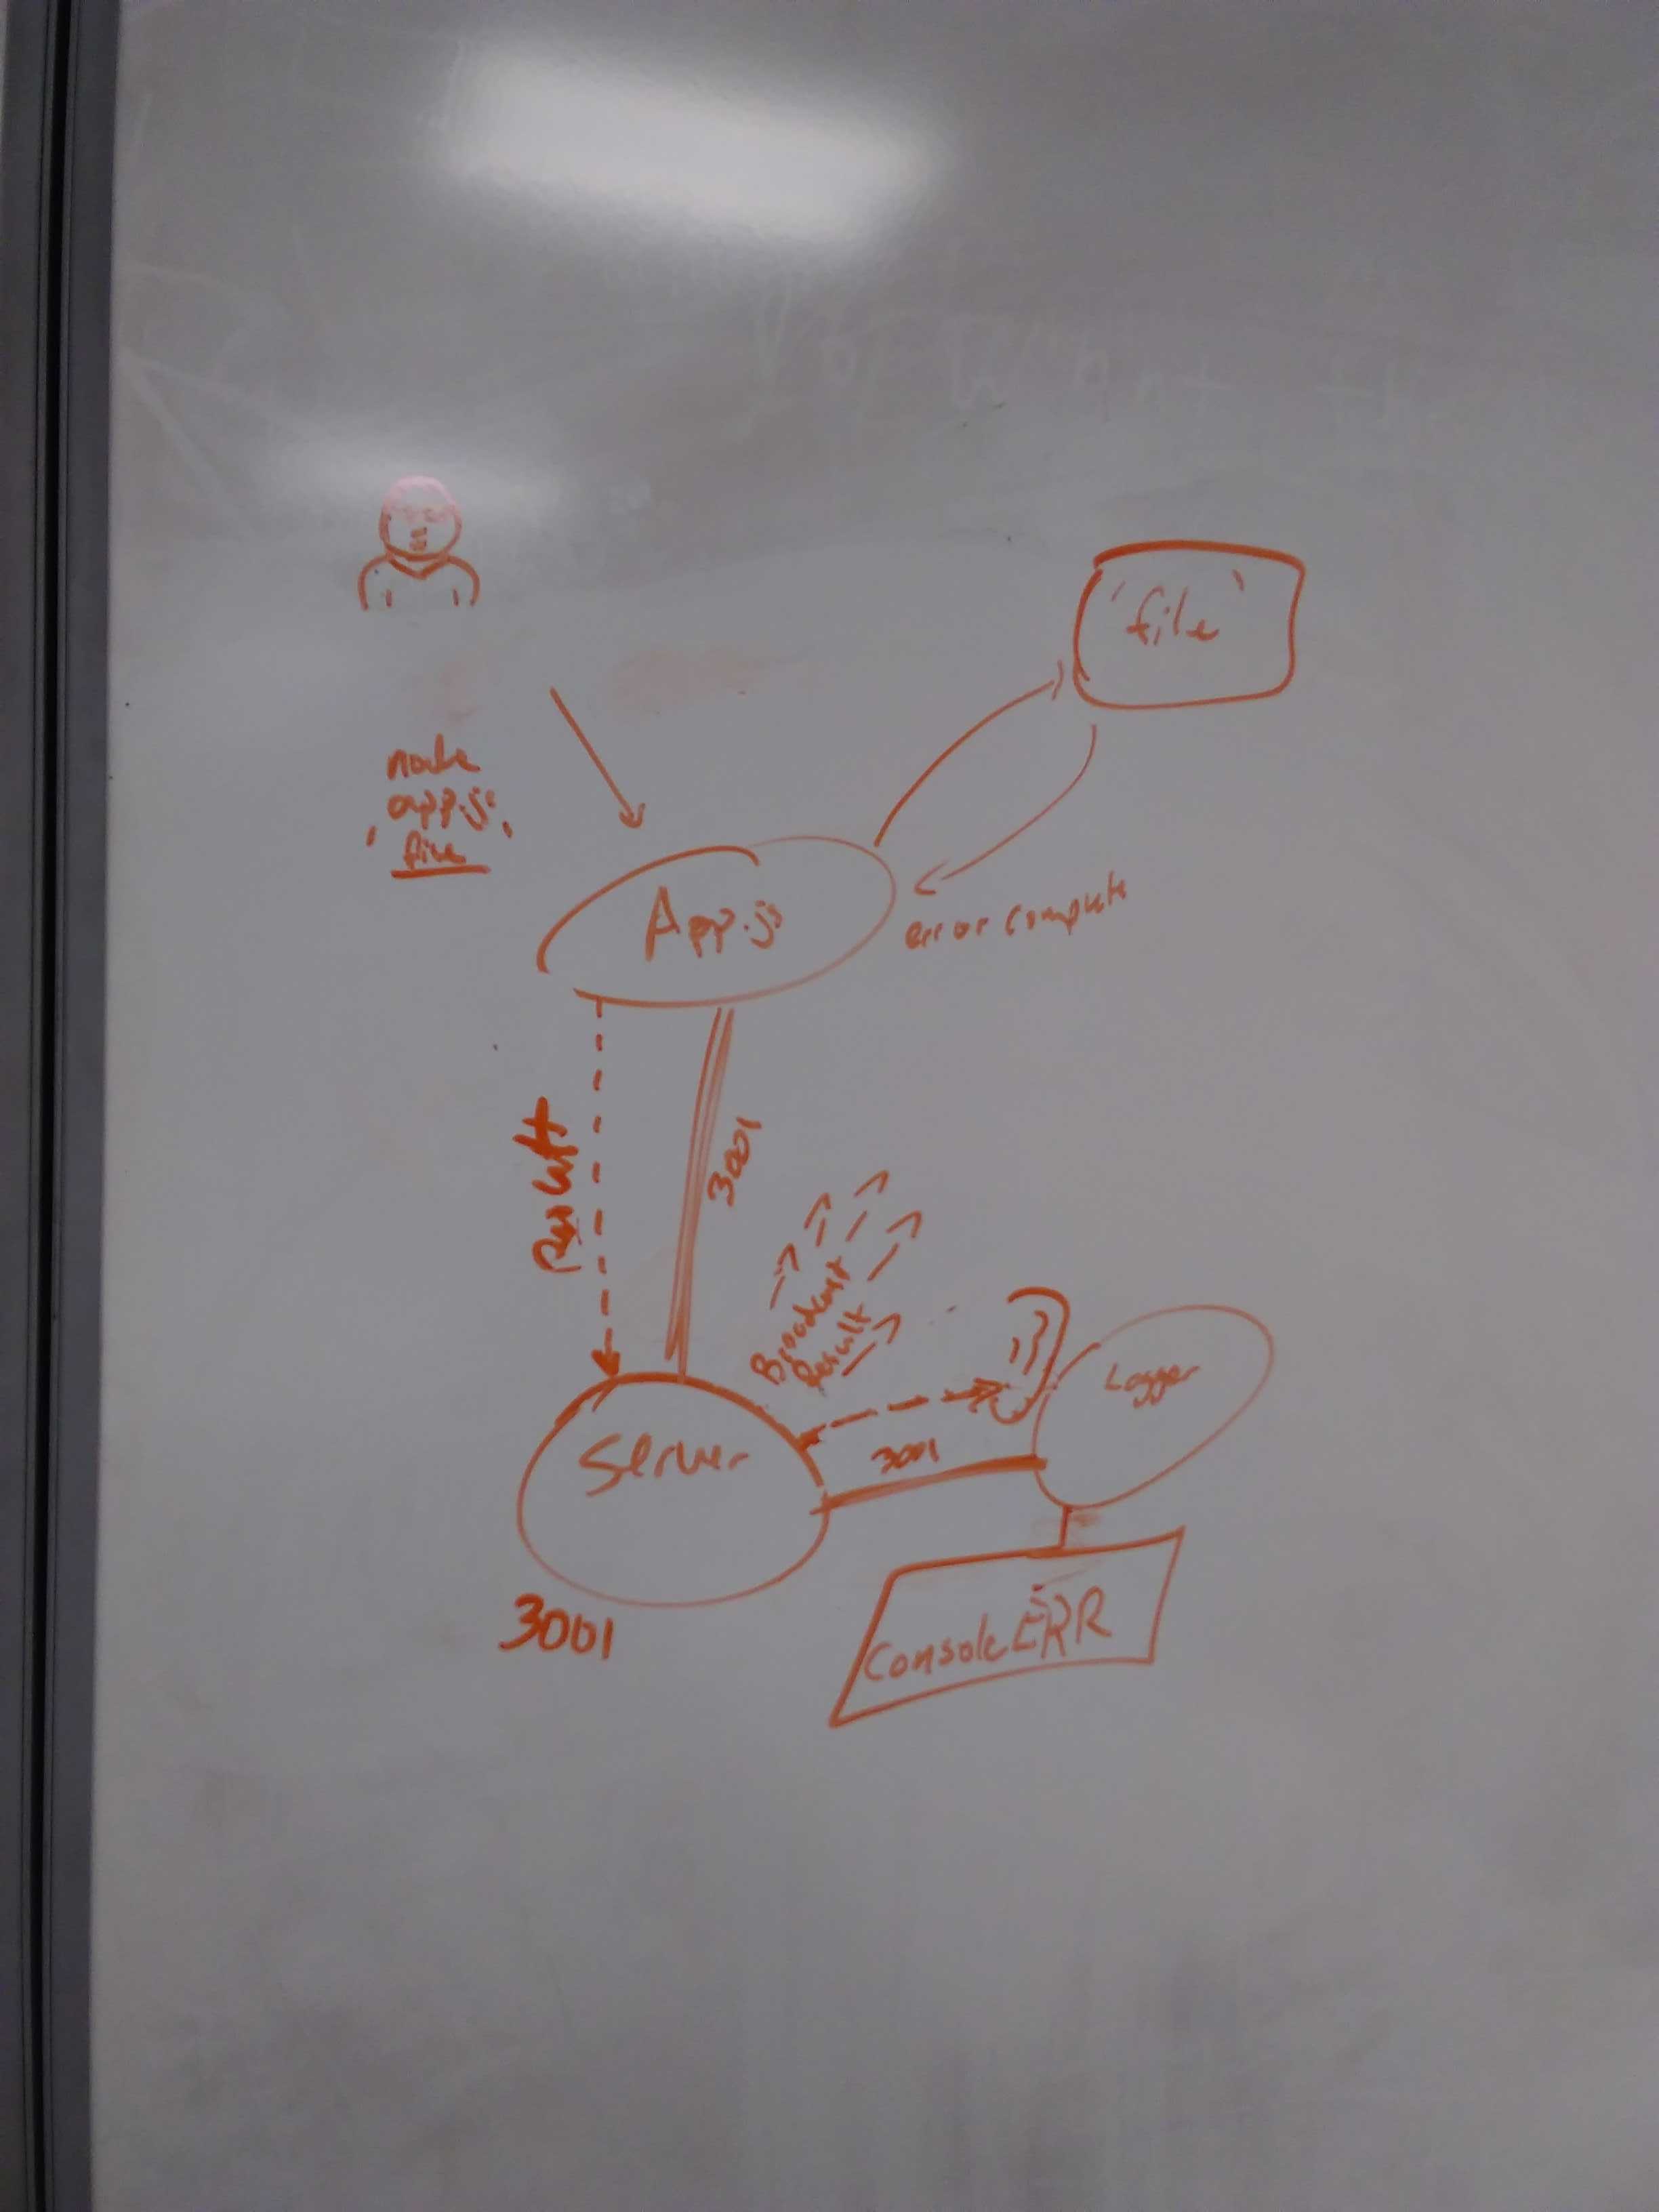 'file'
node
app.js
'file'
App.js
error complete
Result
3001
Broadcast
Result
Logger
3001
Server
3001
ConsoleERR